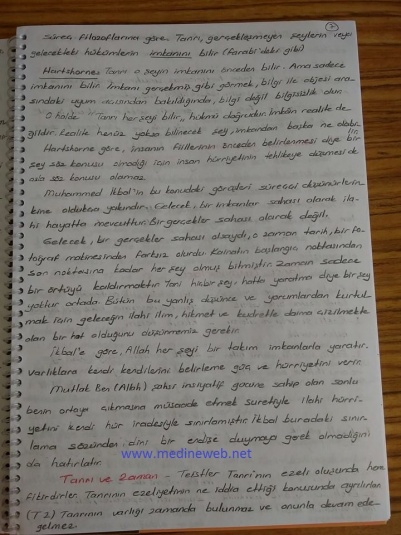 7
Süreç filozoflarına göre Tanrı, gerçekleşmeyen şeylerin veya
gelecekteki hükümlerin imkanını bilir (Farabi'deki gibi)
Hartshorne: Tanrı o şeyin imkanını önceden bilir. Ama sadece
imkanını bilir. İmkanı gerçekmiş gibi görmek, bilgi ile objesi ara-
sındaki uyum açısından bakıldığında, bilgi değil bilgisizlik olur.
O halde Tanrı her şeyi bilir, hükmü doğrudur. İmkan realite de-
ğildir. Realite henüz yoksa bilinecek şey, imkandan başka ne olabilir
Hartshorne göre, insanın fiillerinin önceden belirlenmesi diye bir
şey söz konusu olmadığı için insan hürriyetinin tehlikeye düşmesi de
asla söz konusu olamaz.
Muhammed İkbal'in bu konudaki görüşleri süreçci düşünürlerin-
kine oldukça yakındır. Gelecek, bir imkanlar sahası olarak ila-
hi hayatta mevcuttur. Bir gerçekler sahası olarak değil.
Gelecek, bir gerçekler sahası olsaydı, o zaman tarih, bir fo-
toğraf makinesinden farksız olurdu. Kainatın başlangıç noktasından
son noktasına kadar her şey olmuş bitmiştir. Zaman sadece
bir örtüyü kaldırmaktır. Yani hiçbir şey, hatta yaratma diye bir şey
yoktur ortada. Bütün bu yanlış düşünce ve yorumlardan kurtul-
mak için geleceğin ilahi ilim, hikmet ve kudretle daima çizilmekte
olan bir hat olduğunu düşünmemiz gerekir.
İkbal'e göre, Allah her şeyi bir takım imkanlarla yaratır.
Varlıklara kendi kendilerini belirleme güç ve hürriyetini verir.
Mutlak Ben (Allah), şahsi insiyatif gücüne sahip olan sonlu
benin ortaya çıkmasına müsaade etmek suretiyle ilahi hürri-
yetini kendi hür iradesiyle sınırlamıştır. İkbal buradaki sınır-
lama sözünden dini bir endişe duymaya gerek olmadığını
da hatırlatır.
www.medineweb.net
Tanrı ve Zaman - Teistler Tanrı'nın ezeli oluşunda hem
fikirdirler. Tanrının ezeliyetinin ne iddia ettiği konusunda ayrılırlar.
Tanrının varlığı zamanda bulunmaz ve onunla devam ede-
gelmez.